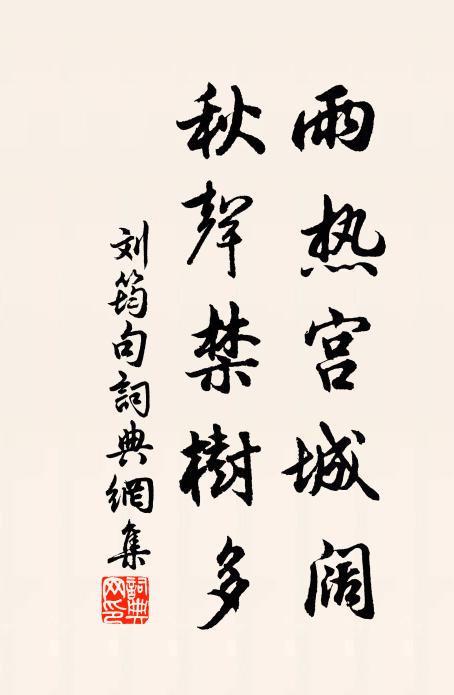 雨热宫城阔
秋聲禁樹多
刘筠句詞典網集
詞典網印